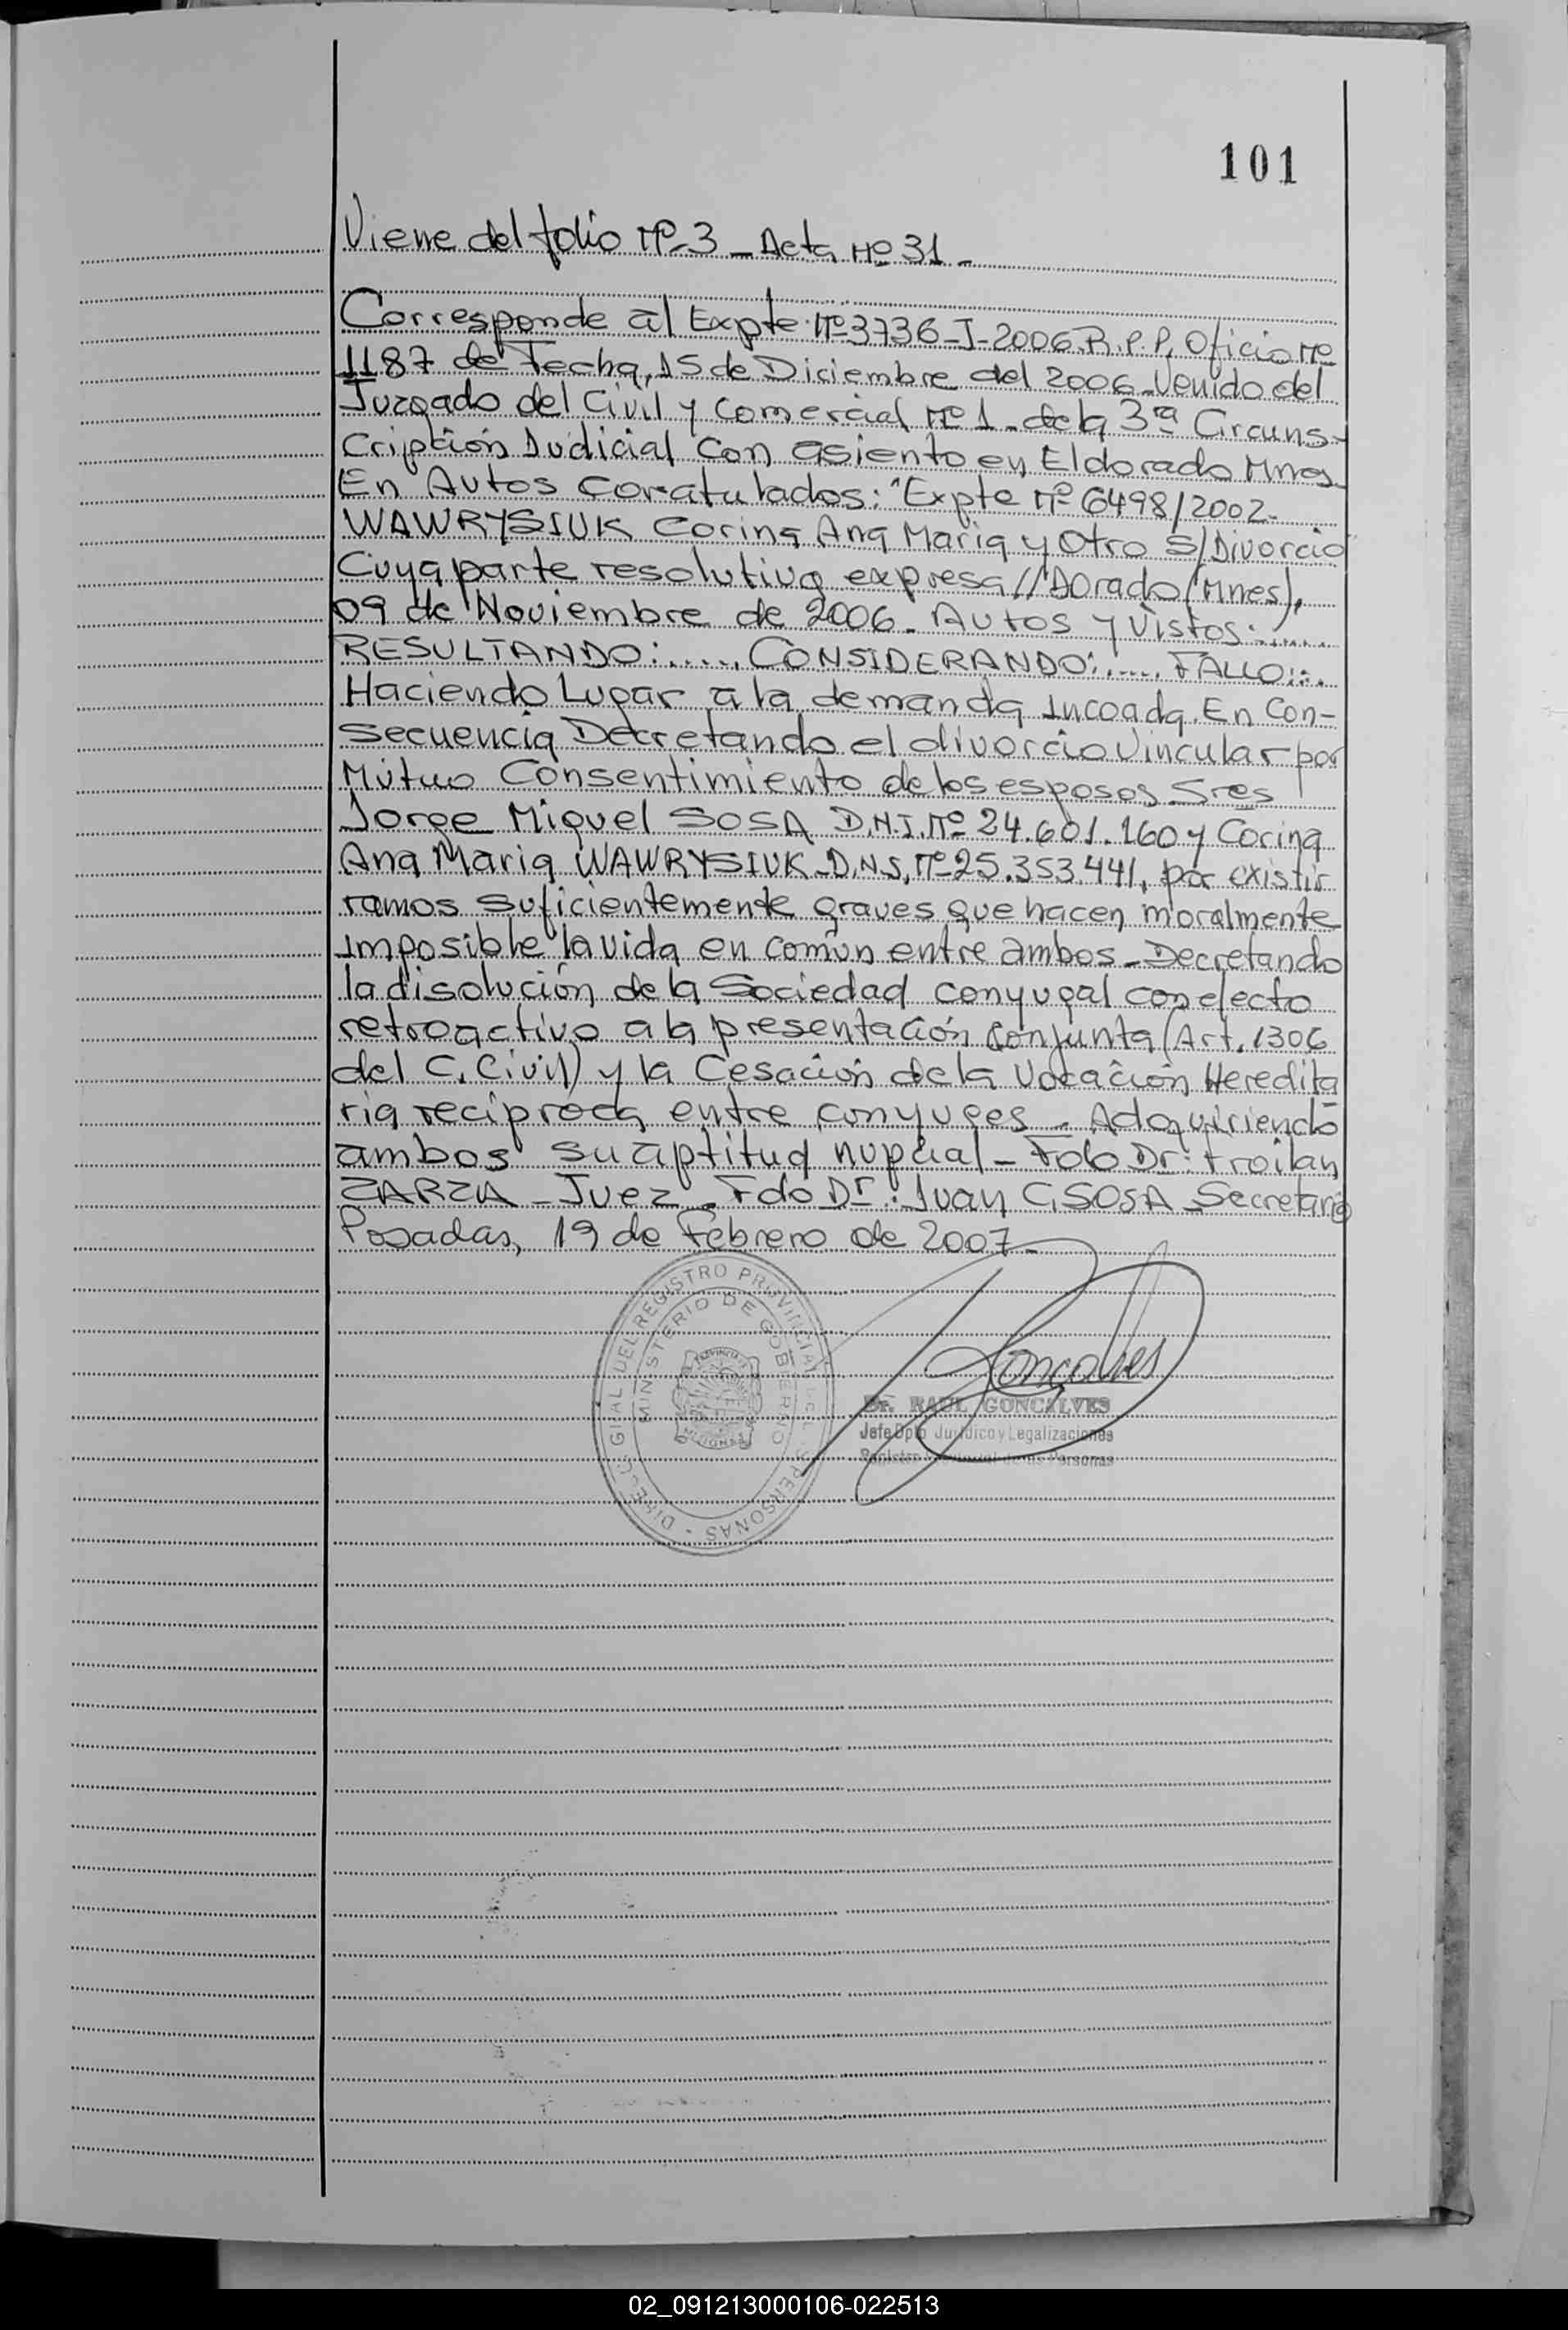 101
Viene del folio Nº-3 _ Acta Nº 31 -
Corresponde al Expte. Nº 3736-J-2006.R.P.P. Oficio Nº
1187 de Fecha, 15 de Diciembre del 2006-Venido del
Juzgado del Civil y Comercial Nº 1 - de la 3ª Circuns-
cripción Judicial con asiento en Eldorado Mnes.
En Autos caratulados: "Expte Nº 6498/2002.
WAWRYSIUK Corina Ana Maria y Otro S/Divorcio"
Cuya parte resolutiva expresa //Dorado (Mnes),
09 de Noviembre de 2006. Autos y Vistos:......
RESULTANDO:..... CONSIDERANDO:..... FALLO:..
Haciendo Lugar a la demanda incoada. En Con-
secuencia Decretando el divorcio Vincular por
Mútuo Consentimiento de los esposos Sres
Jorge Miguel SOSA D.N.I. Nº 24.601.160 y Corina
Ana Maria WAWRYSIUK-D.N.I. Nº 25.353.441, por existir
ramos suficientemente graves que hacen moralmente
imposible la vida en común entre ambos - Decretando
la disolución de la Sociedad conyugal con efecto
retroactivo a la presentación conjunta (Art. 1306
del C. Civil) y la Cesación de la Vocación Heredita
ria recíproca entre conyuges - Adquiriendo
ambos su aptitud nupcial - Fdo Dr: Froilan
ZARZA - Juez - Fdo Dr: Juan C. SOSA - Secretario
Posadas, 19 de Febrero de 2007 -
DIREC. GRAL DEL REGISTRO PROVINCIAL DE L PERSONAS -
MINISTERIO DE GOBIERNO
PROVINCIA
MISIONES
Goncalves
Dr. RAUL GONCALVES
Jefe Dpto Jurídico y Legalizaciones
Registro Provincial de las Personas
02_091213000106-022513